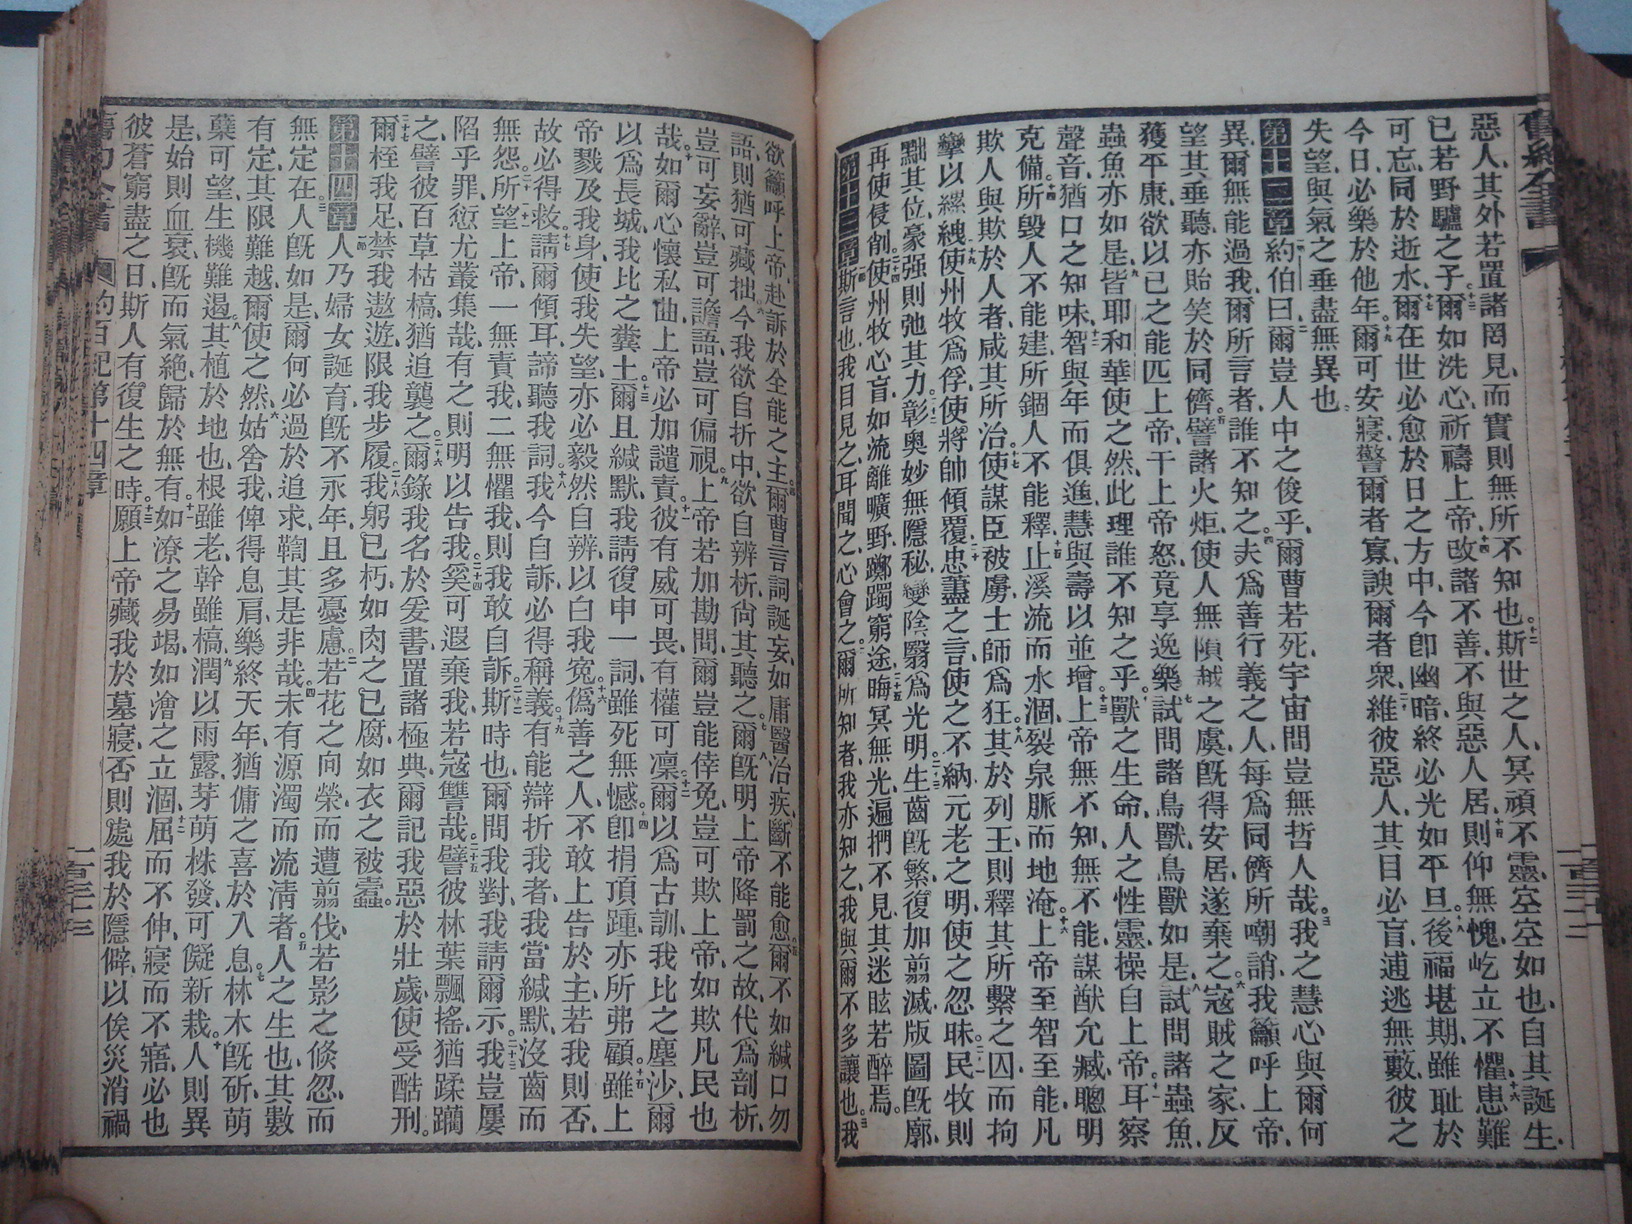 舊約全書
惡人、其外若置諸罔見、而實則無所不知也、十二斯世之人、冥頑不靈、空空如也、自其誕生、
已若野驢之子、十三爾如洗心、祈禱上帝、十四改諸不善、不與惡人居、十五則仰無愧、屹立不懼、十六患難
可忘、同於逝水、十七爾在世必愈於日之方中、今卽幽暗、終必光如平旦、十八後福堪期、雖耻於
今日、必樂於他年、十九爾可安寢、警爾者寡、諛爾者衆、二十維彼惡人、其目必盲、逋逃無藪、彼之
失望、與氣之垂盡無異也。
第十二章 一節約伯曰、二爾豈人中之俊乎、爾曹若死、宇宙間豈無哲人哉、三我之慧心、與爾何
異、爾無能過我、爾所言者、誰不知之、四夫爲善行義之人、每爲同儕所嘲誚、我籲呼上帝、
望其垂聽、亦貽笑於同儕、五譬諸火炬、使人無隕越之虞、旣得安居、遂棄之、六寇賊之家、反
獲平康、欲以己之能匹上帝、干上帝怒、竟享逸樂、七試問諸鳥獸、鳥獸如是、八試問諸蟲魚、
蟲魚亦如是、九皆耶和華使之然、此理誰不知之乎、十獸之生命、人之性靈、操自上帝、十一耳察
聲音、猶口之知味、十二智與年而俱進、慧與壽以並增、十三上帝無不知、無不能、謀猷允臧、聰明
克備、十四所毀人不能建、所錮人不能釋、十五止溪流而水涸、裂泉脈而地淹、十六上帝至智至能、凡
欺人與欺於人者、咸其所治、十七使謀臣被虜、士師爲狂、十八其於列王、則釋其所繫之囚、而拘
攣以縲絏、十九使州牧爲俘、使將帥傾覆、二十忠藎之言、使之不納、元老之明、使之忽昧、二十一民牧則
黜其位、豪强則弛其力、二十二彰奧妙、無隱秘、變陰翳爲光明、二十三生齒旣繁、復加翦滅、版圖旣廓、
再使侵削、二十四使州牧心盲、如流離曠野、躑躅窮途、二十五晦冥無光、遍捫不見、其迷眩若醉焉。
第十三章 一節斯言也、我目見之、耳聞之、心會之、二爾所知者、我亦知之、我與爾不多讓也、三我
欲籲呼上帝、赴訴於全能之主、四爾曹言詞誕妄、如庸醫治疾、斷不能愈、五爾不如緘口勿
語、則猶可藏拙、六今我欲自折中、欲自辨析、尙其聽之、七爾旣明上帝降罰之故、代爲剖析、
豈可妄辭、豈可譫語、八豈可偏視、九上帝若加勘問、爾豈能倖免、豈可欺上帝、如欺凡民也
哉、十如爾心懷私曲、上帝必加譴責、十一彼有威可畏、有權可凜、十二爾以爲古訓、我比之塵沙、爾
以爲長城、我比之糞土、十三爾且緘默、我請復申一詞、雖死無憾、十四卽捐頂踵、亦所弗顧、十五雖上
帝戮及我身、使我失望、亦必毅然自辨、以白我寃、十六僞善之人、不敢上告於主、若我則否、
故必得救、十七請爾傾耳、諦聽我詞、十八我今自訴、必得稱義、十九有能辯折我者、我當緘默、沒齒而
無怨、二十所望上帝、二十一一無責我、二無懼我、則我敢自訴、二十二斯時也、爾問我對、我請爾示、二十三我豈屢
陷乎罪愆、尤叢集哉、有之則明以告我、二十四奚可遐棄我、若寇讐哉、二十五譬彼林葉飄搖、猶蹂躪
之、譬彼百草枯槁、猶追襲之、二十六爾錄我名於爰書、置諸極典、爾記我惡於壯歲、使受酷刑。
二十七爾桎我足、禁我遨遊、限我步履、二十八我躬已朽、如肉之已腐、如衣之被蠹。
第十四章 一節人乃婦女誕育、旣不永年、且多憂慮、二若花之向榮而遭翦伐、若影之倐忽而
無定在、三人旣如是、爾何必過於追求、鞫其是非哉、四未有源濁而流淸者、五人之生也、其數
有定、其限難越、爾使之然、六姑舍我、俾得息肩、樂終天年、猶傭之喜於入息、七林木旣斫、萌
蘗可望、生機難遏、八其植於地也、根雖老、幹雖槁、九潤以雨露、芽萌株發、可儗新栽、十人則異
是、始則血衰、旣而氣絶、歸於無有、十一如潦之易竭、如澮之立涸、十二屈而不伸、寢而不寤、必也
彼蒼窮盡之日、斯人有復生之時、十三願上帝藏我於墓、寢否則處我於隱僻、以俟災消禍
舊約全書 約百記第十四章 一百三十三